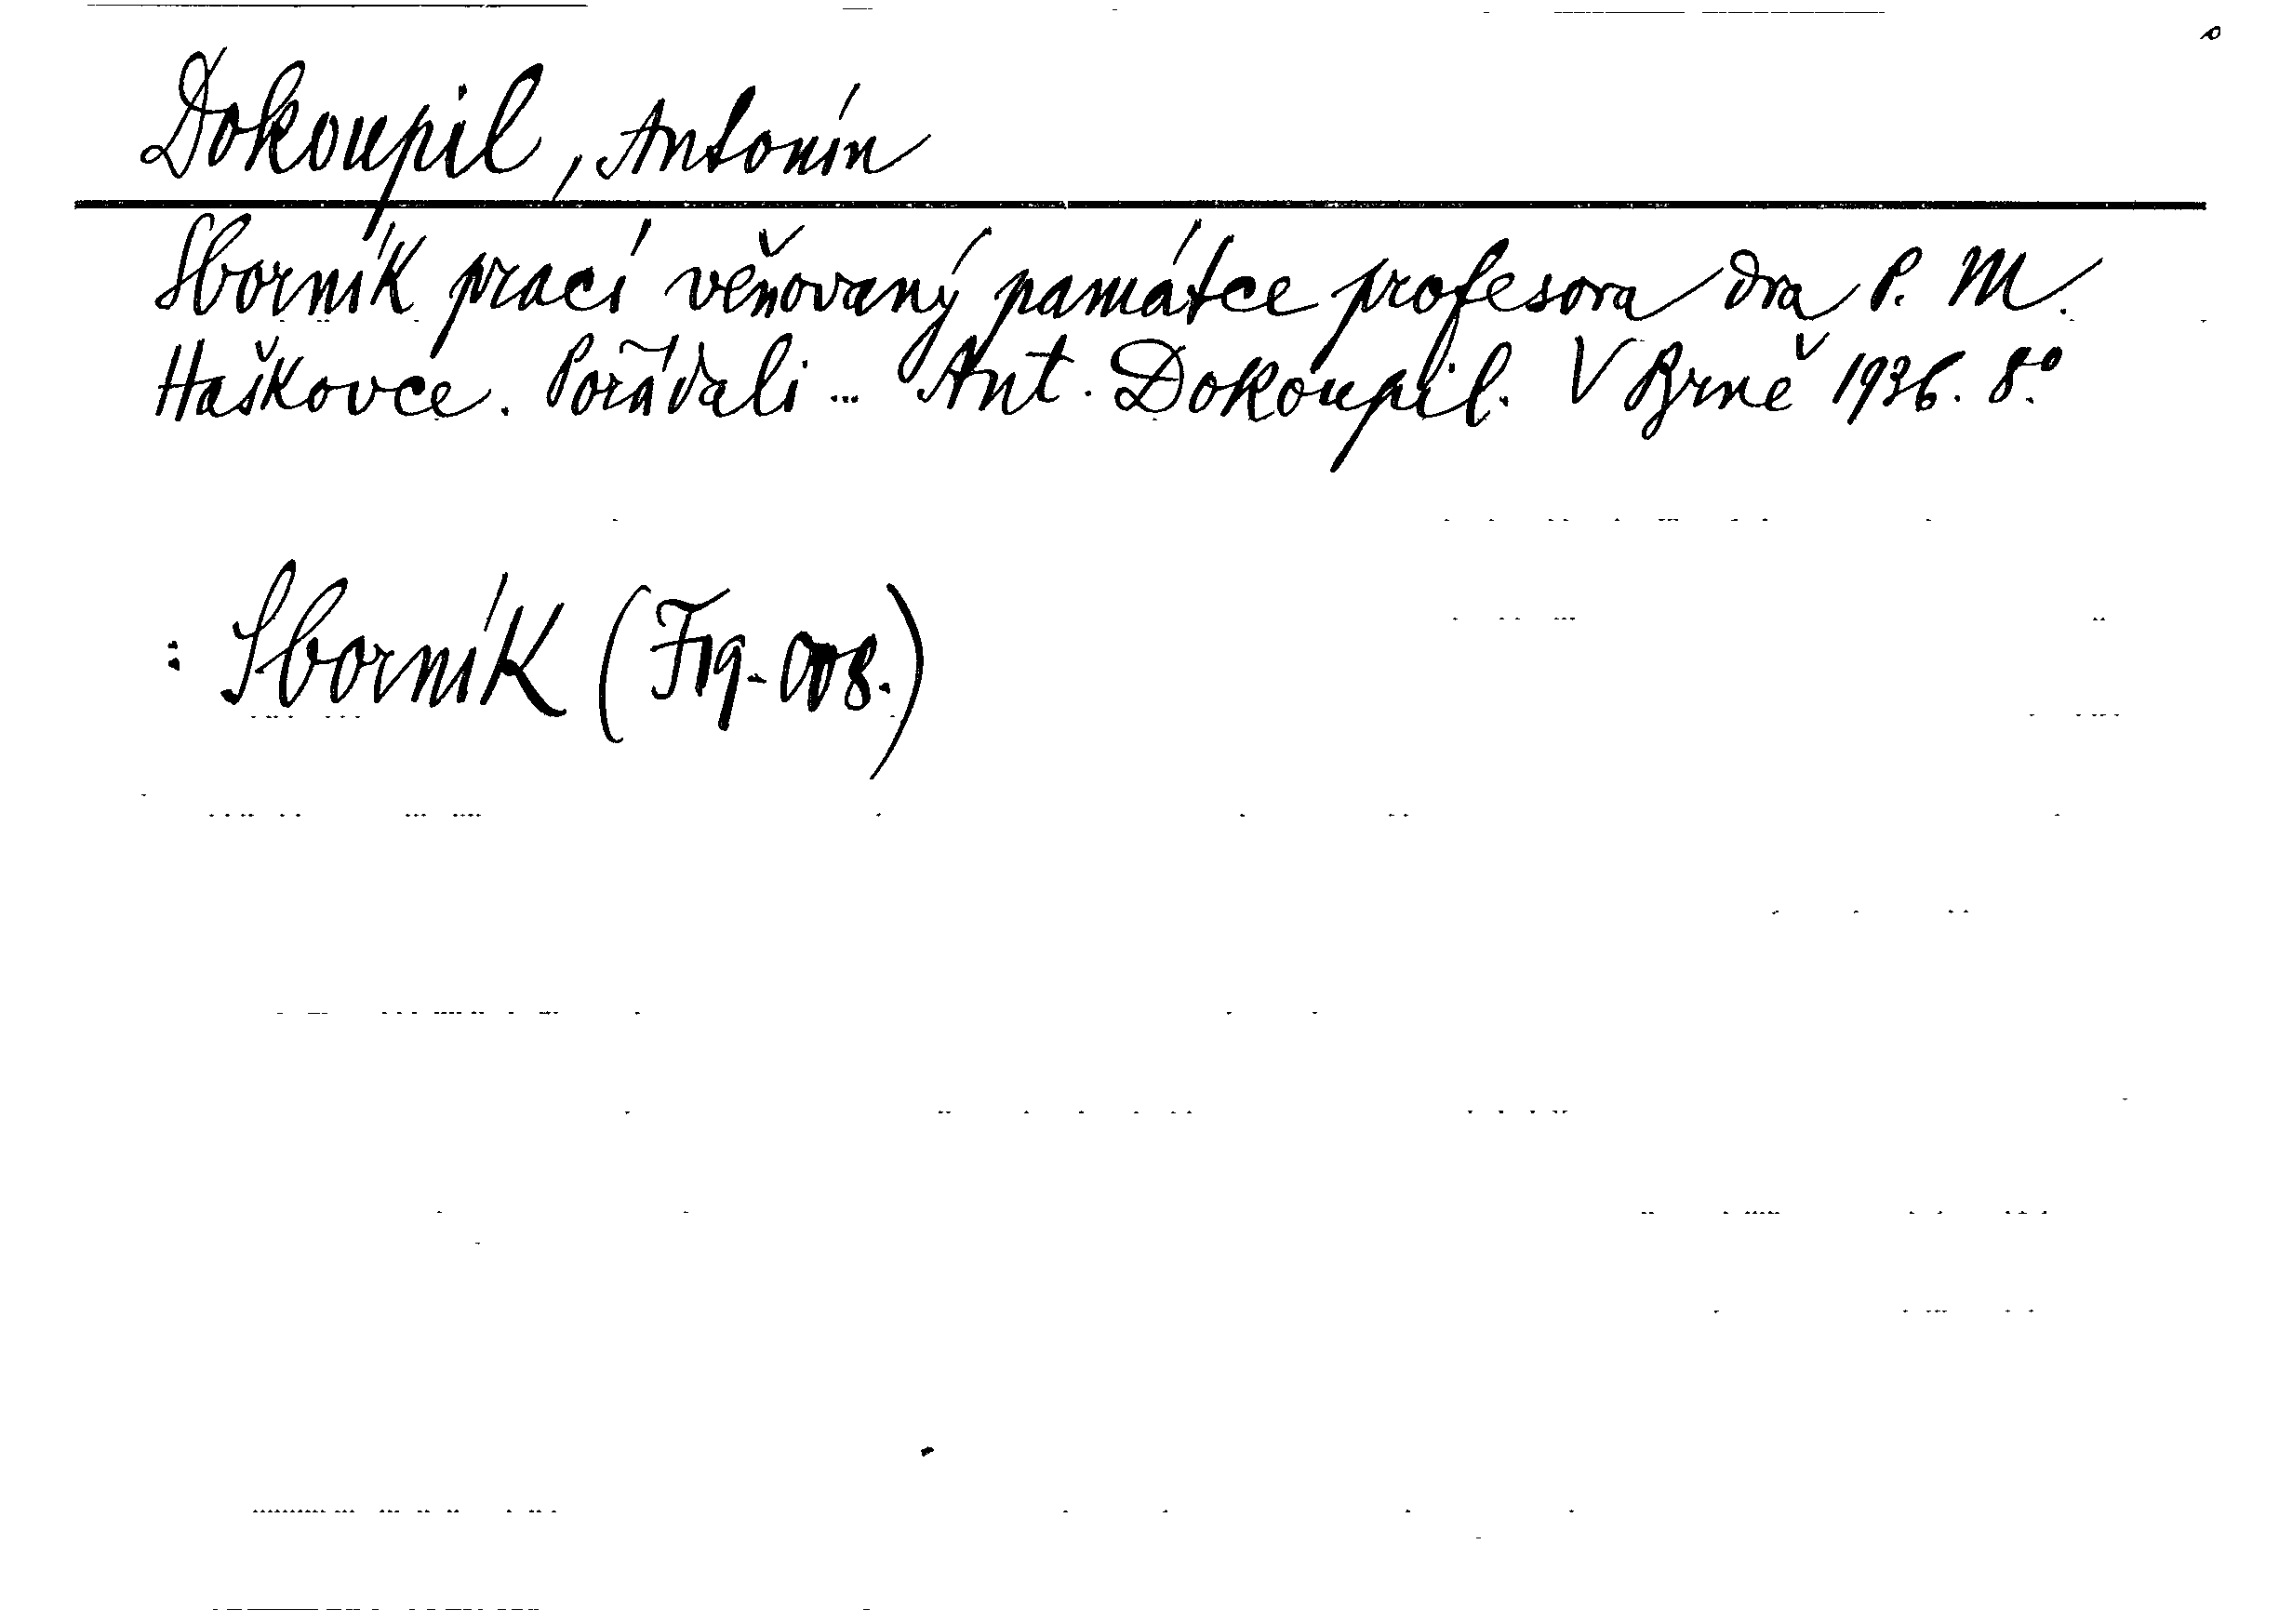 Dokoupil, Antonín
Sborník prací věňovaný památce profesora dra P. M.
Haškovce. Pořádali ... Ant. Dokoupil. V Brně 1936. 8°.
: Sborník (